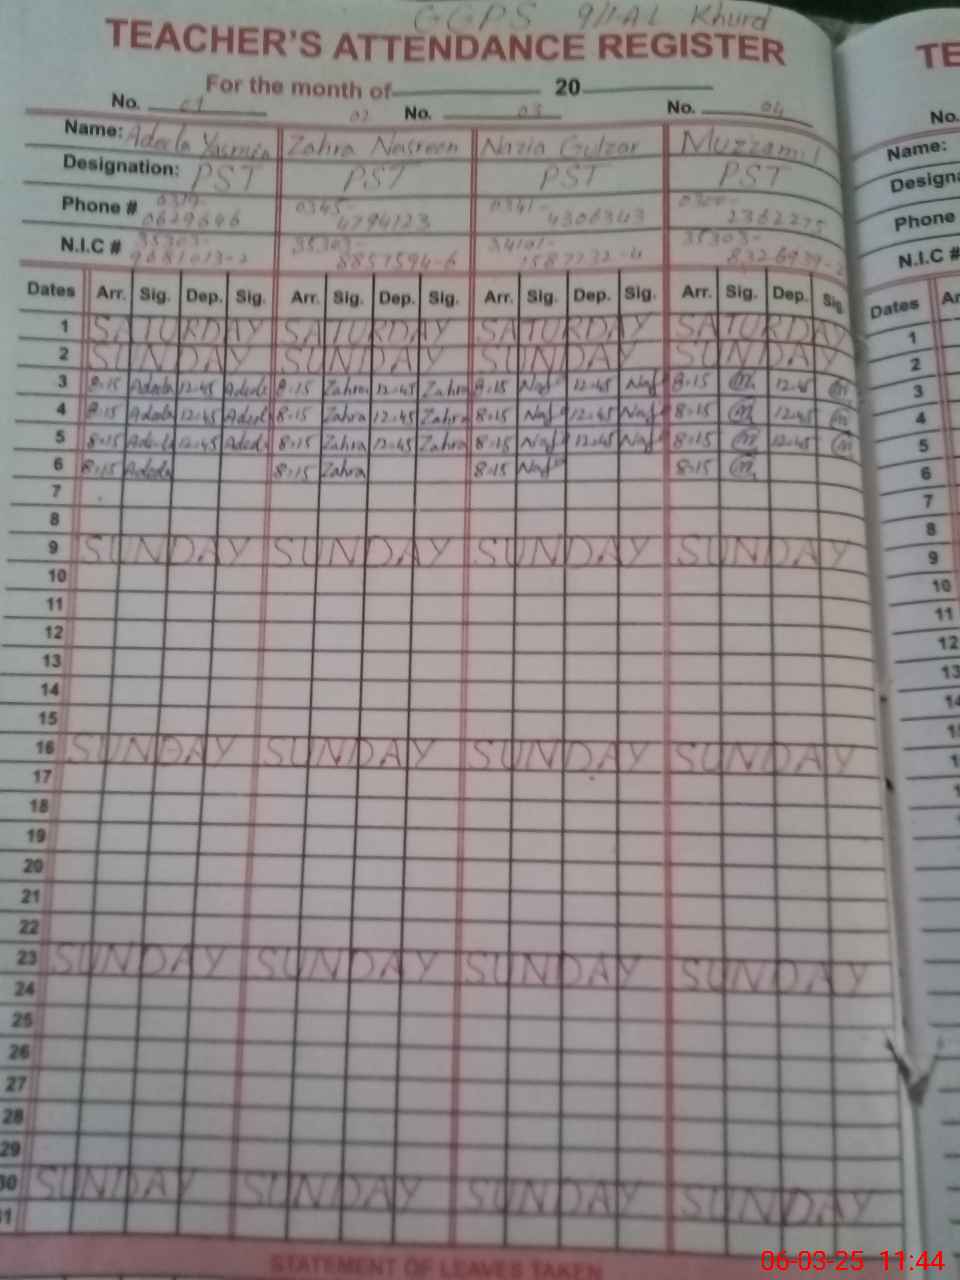 GGPS 9/1-AL Khurd
TEACHER'S ATTENDANCE REGISTER TE
For the month of 20
No. 01 02 No. 03 No. 04 No.
Name: Adeela Yasmin Zahra Nasreen Nazia Gulzar Muzzamil Name:
Designation: PST PST PST PST Designa
Phone # 0345- 4794123 0341- 4306343 2362275 Phone
N.I.C # 35303- 35303- 8857594-6 34101- 35303- N.I.C #
Dates Arr. Sig. Dep. Sig. Arr. Sig. Dep. Sig. Arr. Sig. Dep. Sig. Arr. Sig. Dep. Sig. Dates Ar
1 SATURDAY SATURDAY SATURDAY SATURDAY 1
2 SUNDAY SUNDAY SUNDAY SUNDAY 2
3 8:15 Adeela 12:45 Adeela 8:15 Zahra 12:45 Zahra 8:15 Naz 12:45 Naz 8:15 m 12:45 m 3
4 8:15 Adeela 12:45 Adeela 8:15 Zahra 12:45 Zahra 8:15 Naz 12:45 Naz 8:15 m 12:45 m 4
5 8:15 Adeela 12:45 Adeela 8:15 Zahra 12:45 Zahra 8:15 Naz 12:45 Naz 8:15 m 12:45 m 5
6 8:15 Adeela 8:15 Zahra 8:15 Naz 8:15 m 6
7 7
8 8
9 SUNDAY SUNDAY SUNDAY SUNDAY 9
10 10
11 11
12 12
13 13
14 14
15
16 SUNDAY SUNDAY SUNDAY SUNDAY
17
18
19
20
21
22
23 SUNDAY SUNDAY SUNDAY SUNDAY
24
25
26
27
28
29
30 SUNDAY SUNDAY SUNDAY SUNDAY
31
STATEMENT OF LEAVES TAKEN
06-03-25 11:44